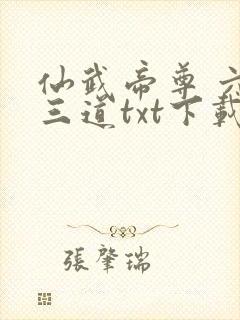 仙武帝尊 六
三道txt下載
張肇瑞